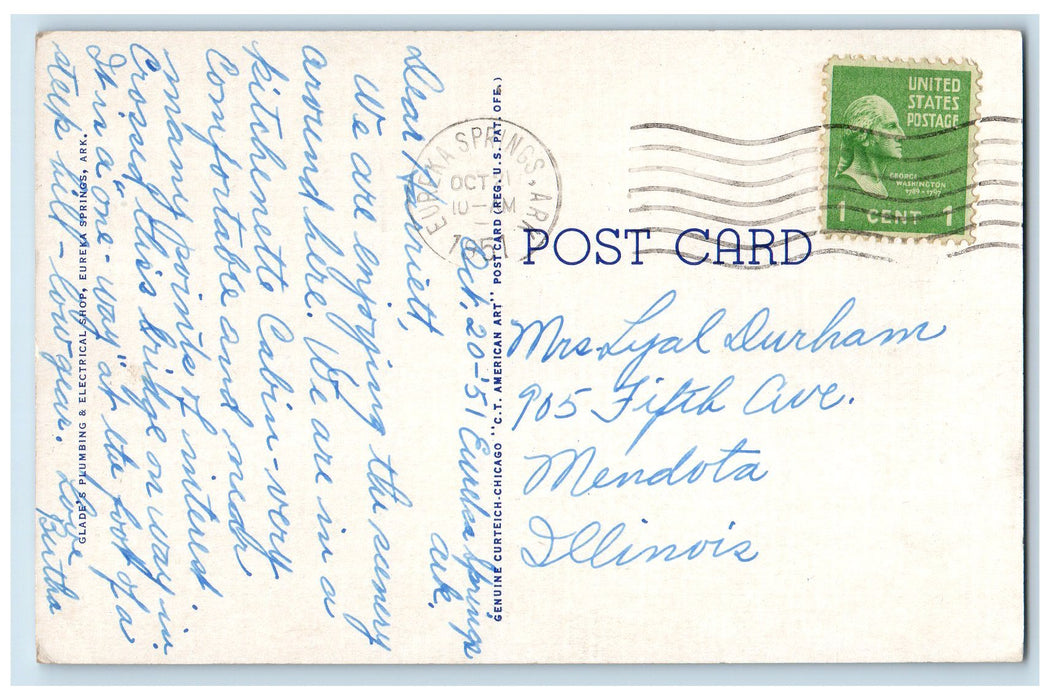 Oct. 20-'51 Eureka Springs
Ark.
Dear Harriett,
We are enjoying the scenery
around here. We are in a
kitchenette Cabin - very
Comfortable and near
many points of interest.
Crossed this bridge on way in.
It is a "one-way" at the foot of a
steep hill - low gear. Love
Bertha
GLADE'S PLUMBING & ELECTRICAL SHOP, EUREKA SPRINGS, ARK.
GENUINE CURTEICH-CHICAGO "C.T. AMERICAN ART" POST CARD (REG. U.S. PAT. OFF.)
EUREKA SPRINGS, ARK.
OCT 21
10
1951
UNITED
STATES
POSTAGE
GEORGE
WASHINGTON
1789-1797
1 CENT 1
POST CARD
Mrs Lyal Durham
905 Fifth Ave.
Mendota
Illinois